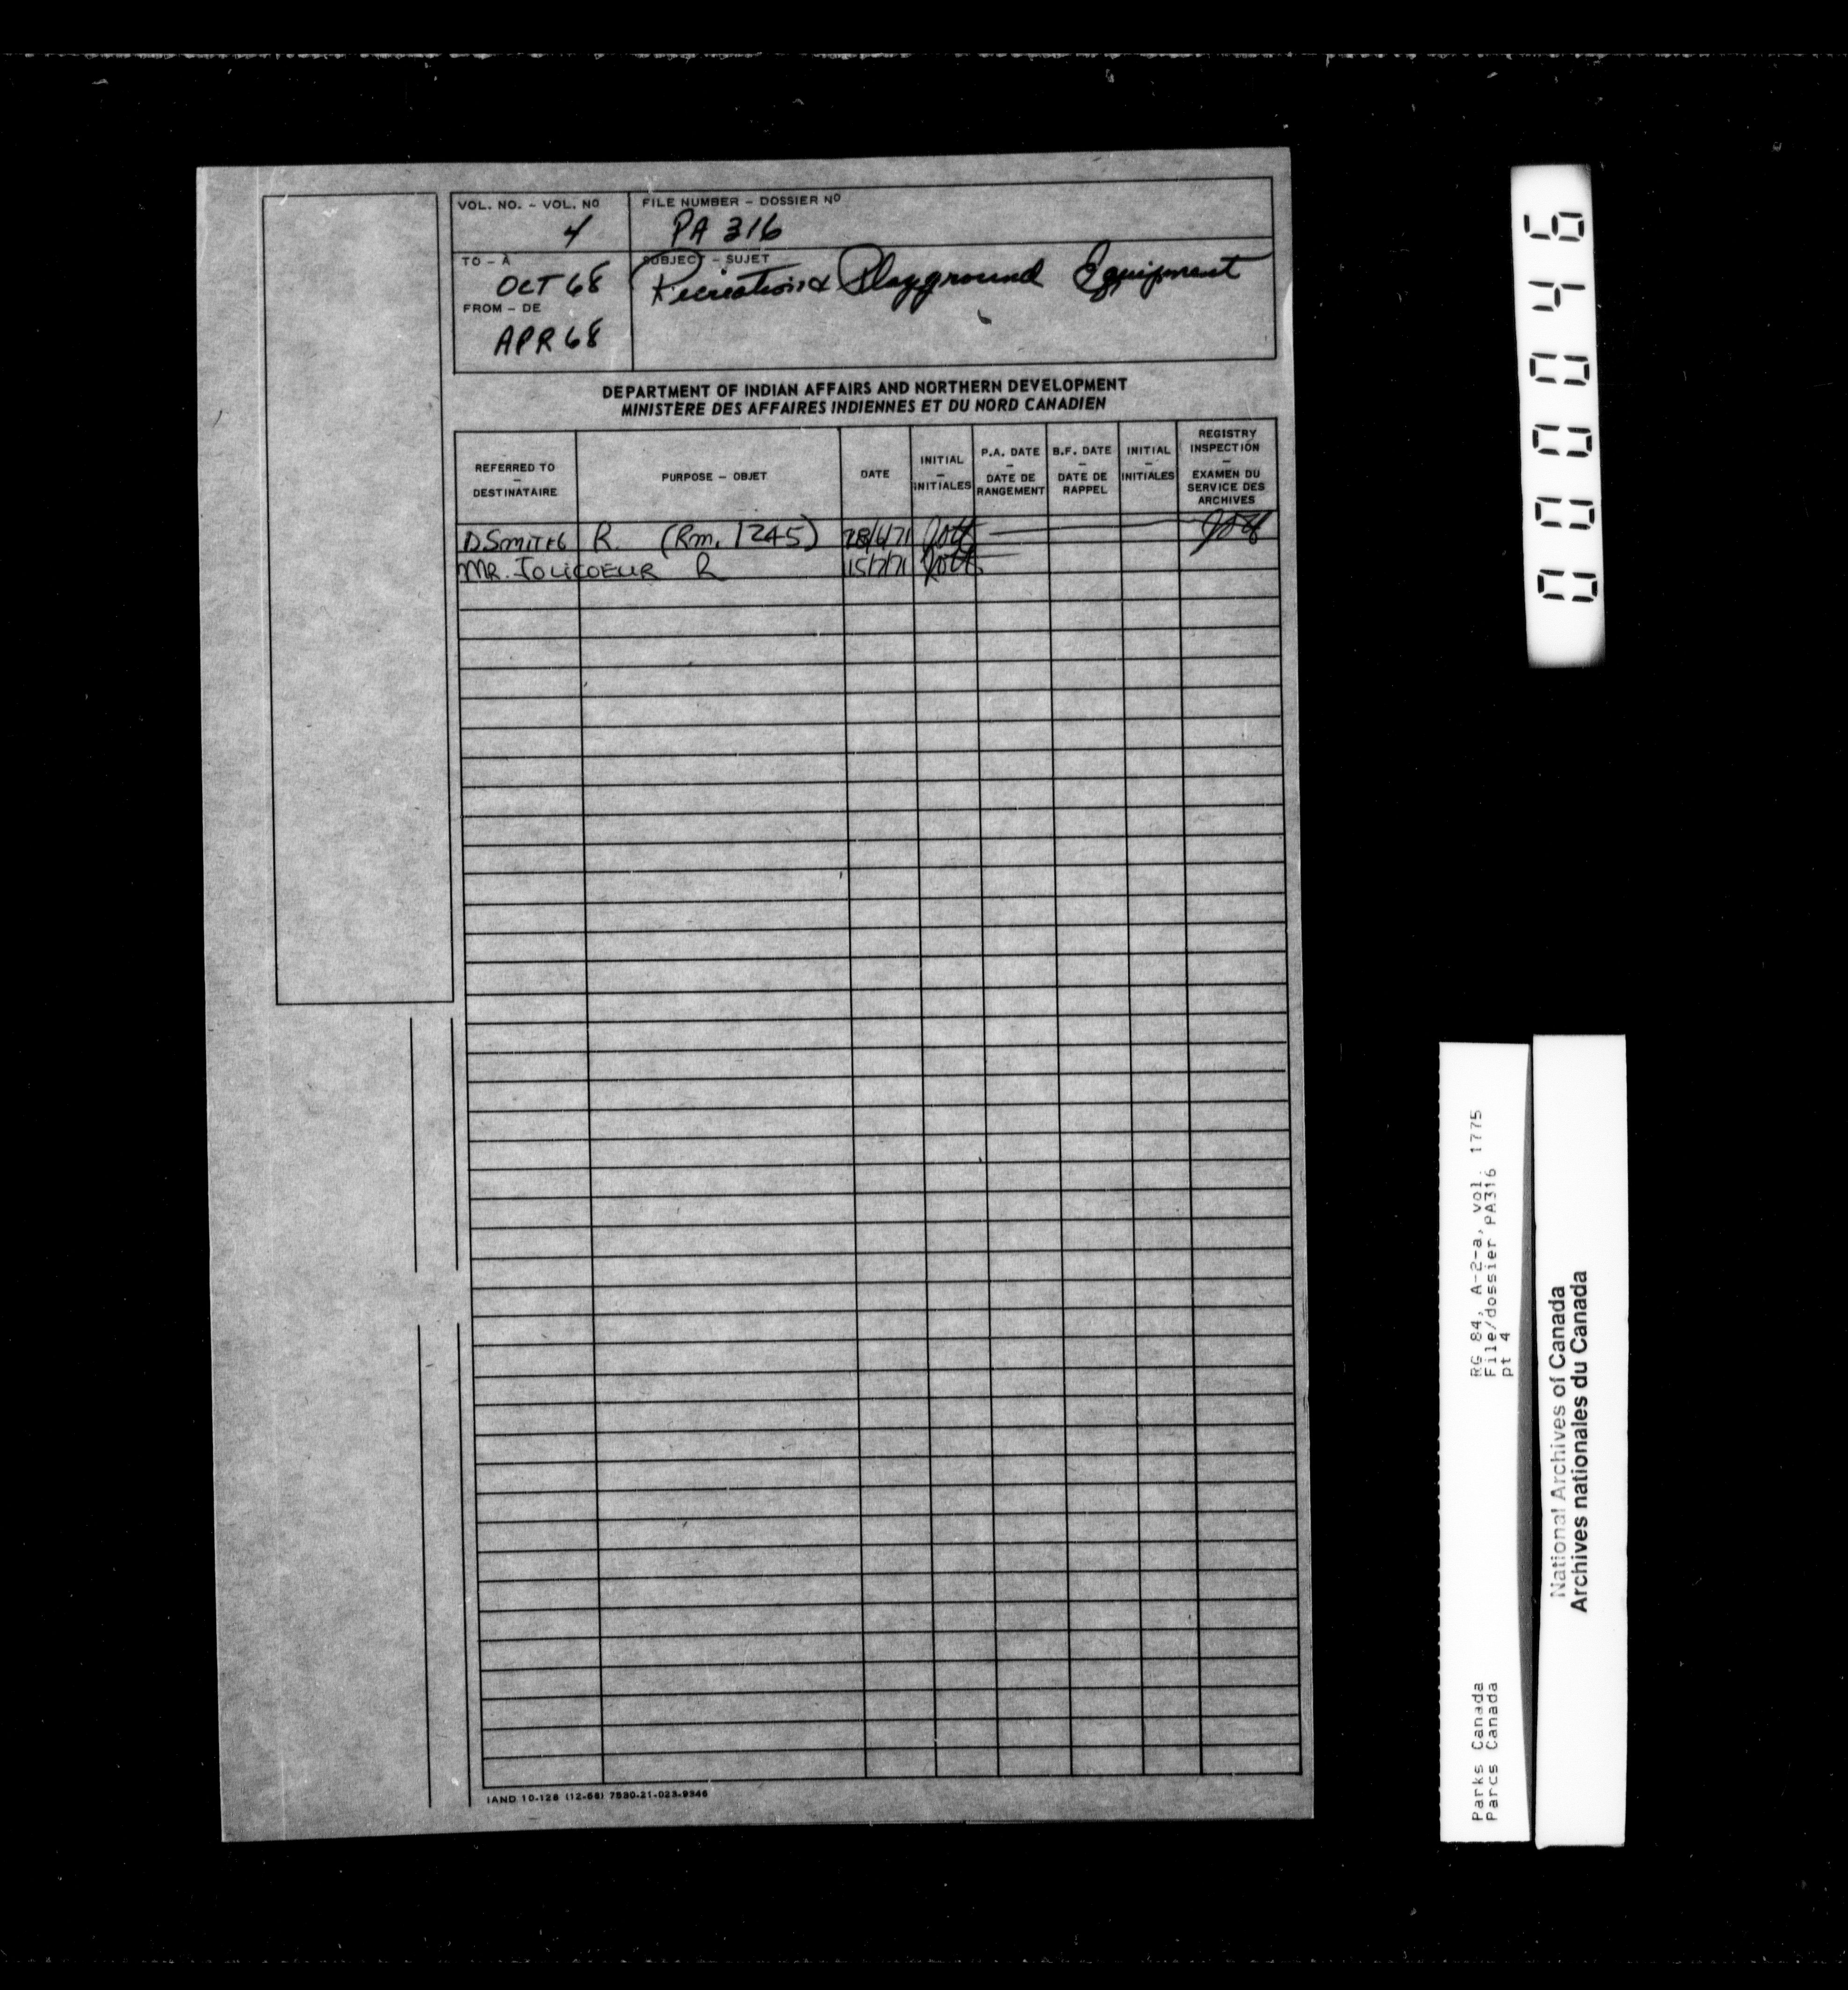 VOL. NO. - VOL. NO
4
FILE NUMBER - DOSSIER Nº
PA 316
TO - À
OCT 68
FROM - DE
APR 68
SUBJECT - SUJET
Recreation & Playground Equipment
DEPARTMENT OF INDIAN AFFAIRS AND NORTHERN DEVELOPMENT
MINISTÈRE DES AFFAIRES INDIENNES ET DU NORD CANADIEN
REFERRED TO
-
DESTINATAIRE
PURPOSE - OBJET
DATE
INITIAL
-
INITIALES
P.A. DATE
-
DATE DE
RANGEMENT
B.F. DATE
-
DATE DE
RAPPEL
INITIAL
-
INITIALES
REGISTRY
INSPECTION
-
EXAMEN DU
SERVICE DES
ARCHIVES
R. (Rm. 1245) 28/6/71
MR. JOLICOEUR R 15/7/71
IAND 10-128 (12-68) 7530-21-023-9346
000046
RG 84, A-2-a, vol. 1775
File/dossier PA316
pt 4
Parks Canada
Parcs Canada
National Archives of Canada
Archives nationales du Canada